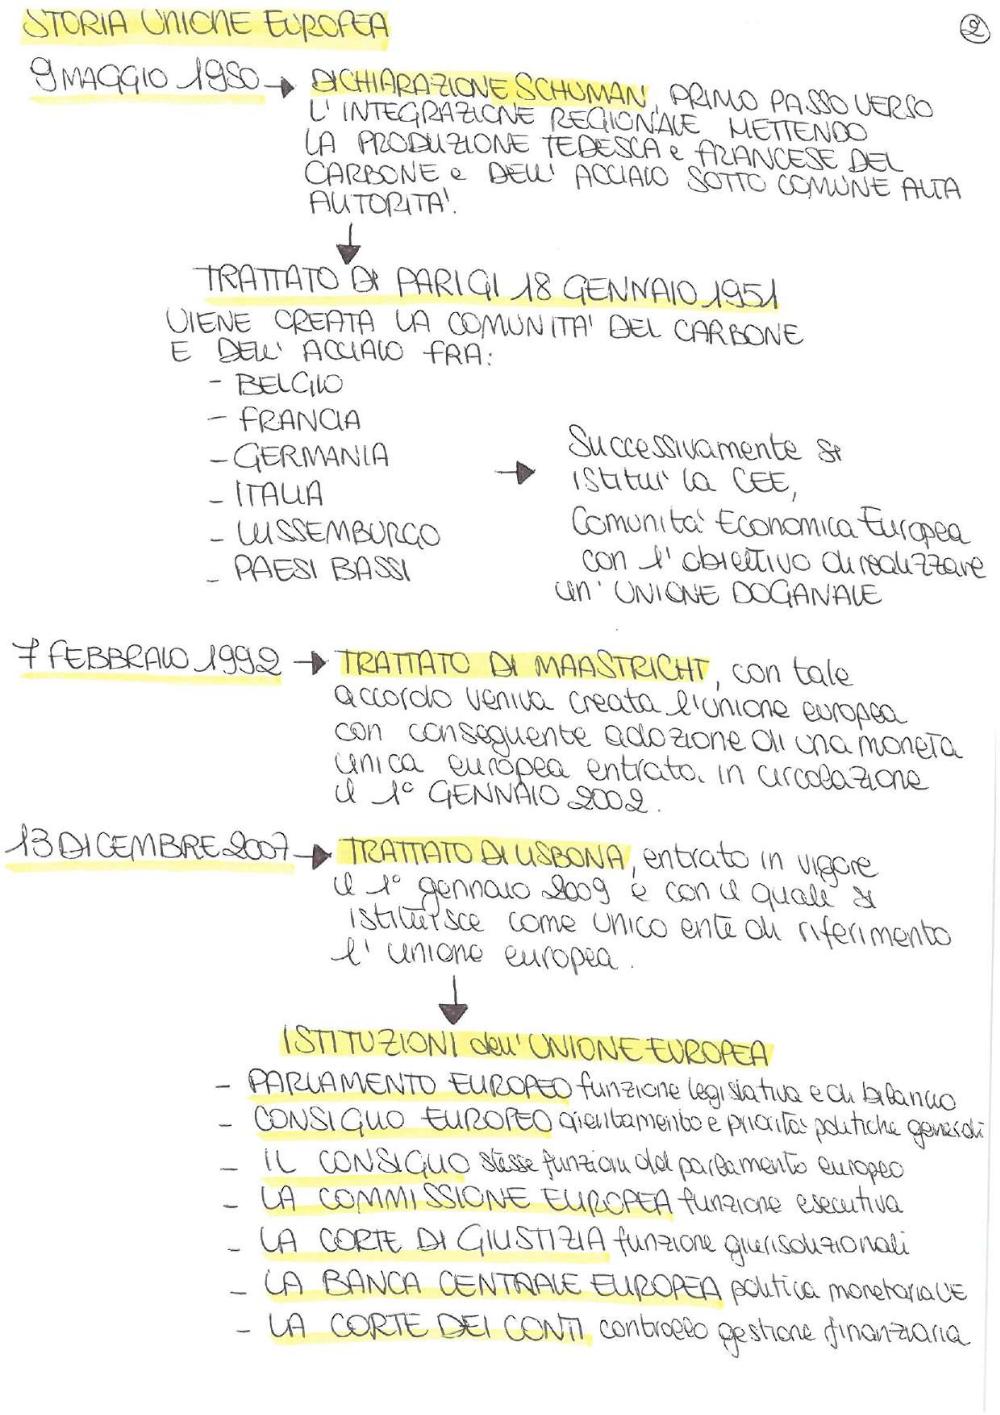 STORIA UNIONE EUROPEA
2
9 MAGGIO 1950 → DICHIARAZIONE SCHUMAN, PRIMO PASSO VERSO
L'INTEGRAZIONE REGIONALE METTENDO
LA PRODUZIONE TEDESCA e FRANCESE DEL
CARBONE e DELL' ACCIAIO SOTTO COMUNE ALTA
AUTORITA'.
TRATTATO DI PARIGI 18 GENNAIO 1951
VIENE CREATA LA COMUNITA' DEL CARBONE
E DELL' ACCIAIO FRA:
- BELGIO
- FRANCIA
- GERMANIA
- ITALIA
- LUSSEMBURGO
- PAESI BASSI
→ Successivamente si
istitui' la CEE,
Comunita' Economica Europea
con l'obiettivo di realizzare
un' UNIONE DOGANALE
7 FEBBRAIO 1992 → TRATTATO DI MAASTRICHT, con tale
accordo veniva creata l'unione europea
con conseguente adozione di una moneta
unica europea entrata in circolazione
il 1° GENNAIO 2002.
13 DICEMBRE 2007 → TRATTATO DI LISBONA, entrato in vigore
il 1° gennaio 2009 e con il quale si
istituisce come unico ente di riferimento
l' unione europea.
ISTITUZIONI dell' UNIONE EUROPEA
- PARLAMENTO EUROPEO funzione legislativa e di bilancio
- CONSIGLIO EUROPEO orientamento e priorita' politiche generali
- IL CONSIGLIO stesse funzioni del parlamento europeo
- LA COMMISSIONE EUROPEA funzione esecutiva
- LA CORTE DI GIUSTIZIA funzione giurisdizionali
- LA BANCA CENTRALE EUROPEA politica monetaria UE
- LA CORTE DEI CONTI controllo gestione finanziaria